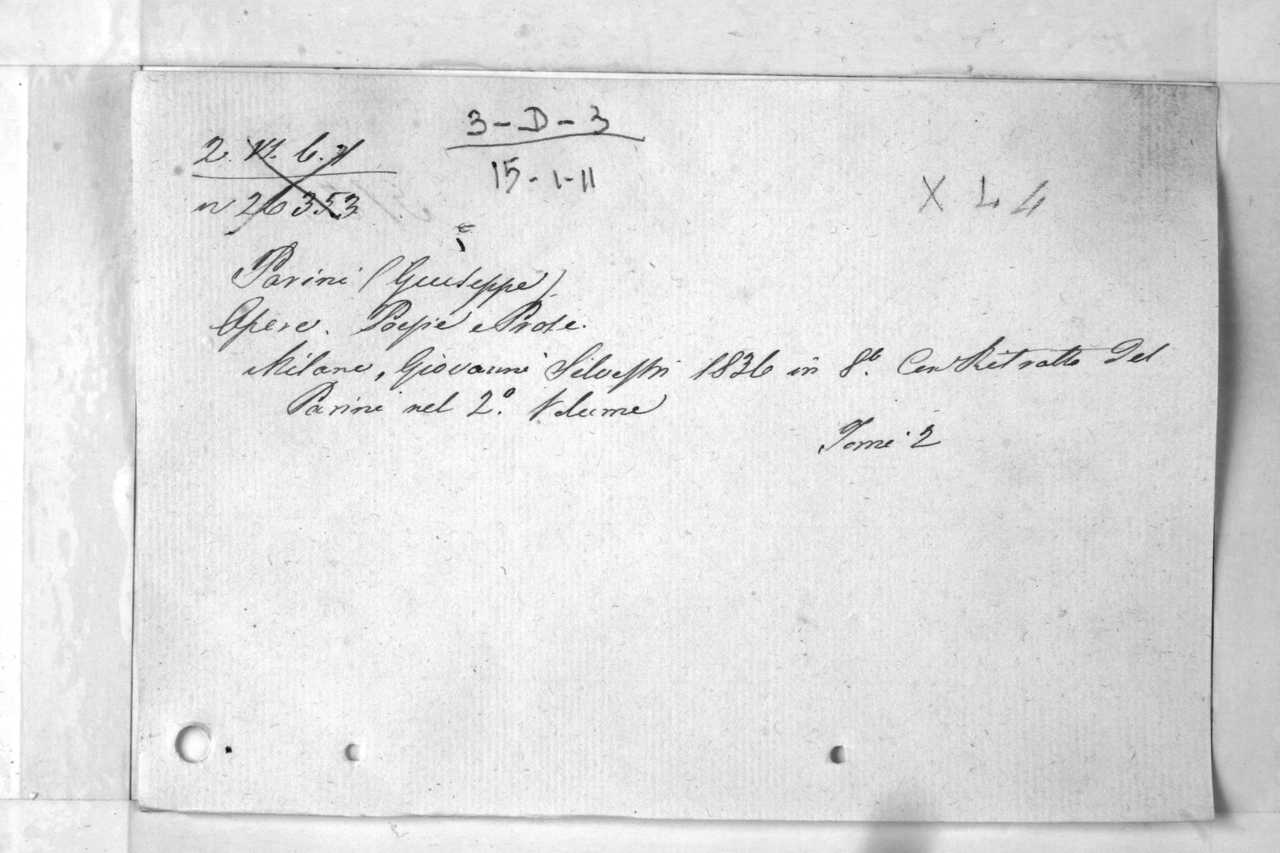 3-D-3
15-1-11
2.
n 26353
X L 4
Parini (Giuseppe)
Opere. Poesie e Prose.
Milano, Giovanni Silvestri 1836 in 8.º Con Ritratto del
Parini nel 2.º Volume
Tomi 2